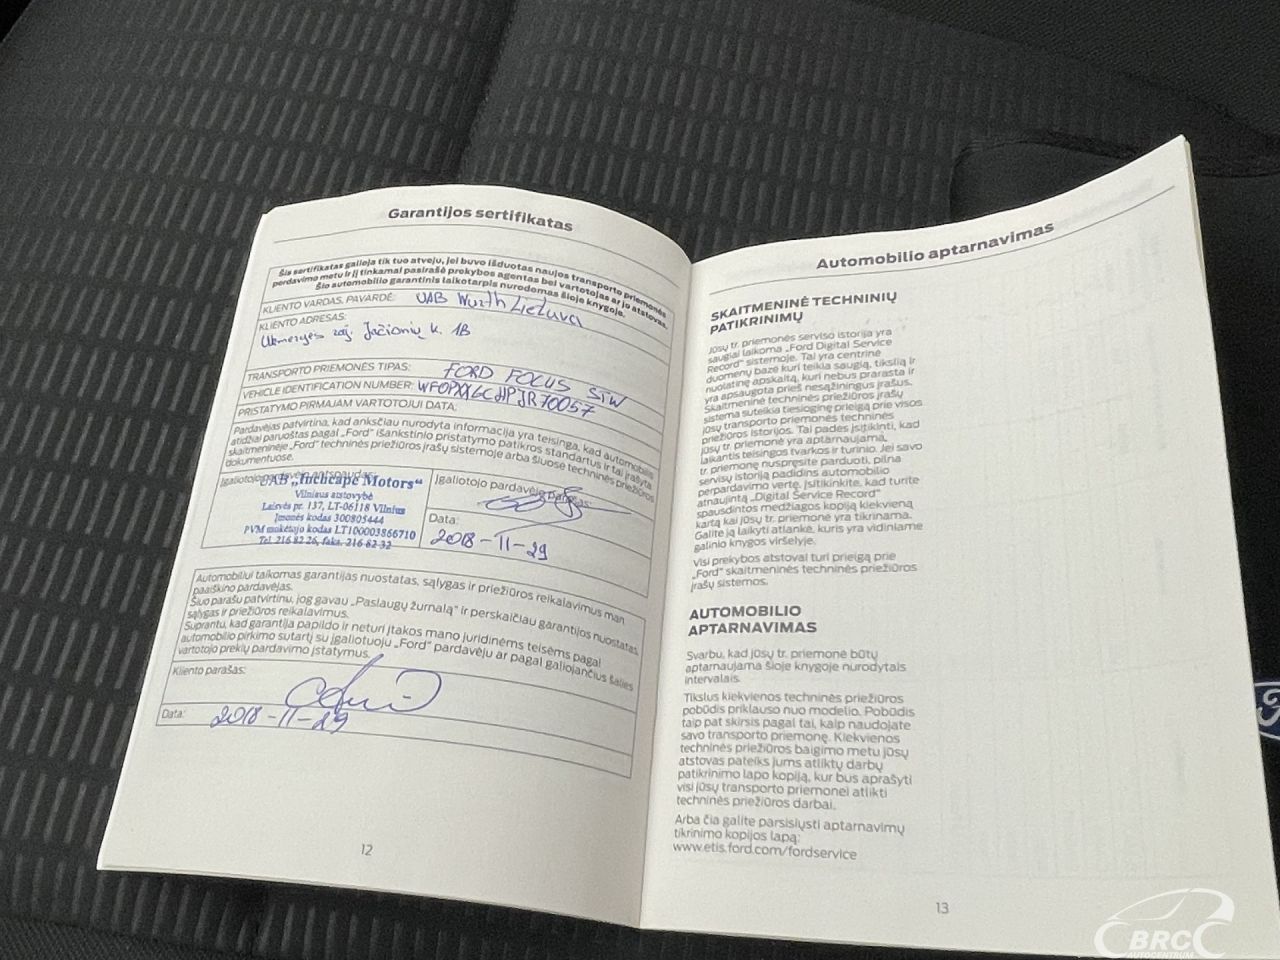 Garantijos sertifikatas
Šis sertifikatas galioja tik tuo atveju, jei buvo išduotas naujos transporto priemonės
perdavimo metu ir jį tinkamai pasirašė prekybos agentas bei vartotojas ar jo atstovas.
Šio automobilio garantinis laikotarpis nurodomas šioje knygoje.
KLIENTO VARDAS, PAVARDĖ: UAB Wurth Lietuva
KLIENTO ADRESAS:
Ukmergės raj. Jačionių k. 1B
TRANSPORTO PRIEMONĖS TIPAS: FORD FOCUS STW
VEHICLE IDENTIFICATION NUMBER: WF0PXXGCHPJR70057
PRISTATYMO PIRMAJAM VARTOTOJUI DATA:
Pardavėjas patvirtina, kad anksčiau nurodyta informacija yra teisinga, kad automobilis
atidžiai paruoštas pagal „Ford“ išankstinio pristatymo patikros standartus ir tai įrašyta
skaitmeninėje „Ford“ techninės priežiūros įrašų sistemoje arba šiuose techninės priežiūros
dokumentuose.
Įgaliotojo pardavėjo antspaudas:
UAB „Inchcape Motors“
Vilniaus atstovybė
Laisvės pr. 137, LT-06118 Vilnius
Įmonės kodas 300805444
PVM mokėtojo kodas LT100003866710
Tel. 216 82 26, faks. 216 82 32
Įgaliotojo pardavėjo parašas:
Data:
2018-11-29
Automobiliui taikomas garantijas nuostatas, sąlygas ir priežiūros reikalavimus man
paaiškino pardavėjas.
Šiuo parašu patvirtinu, jog gavau „Paslaugų žurnalą“ ir perskaičiau garantijos nuostatas,
sąlygas ir priežiūros reikalavimus.
Suprantu, kad garantija papildo ir neturi įtakos mano juridinėms teisėms pagal
automobilio pirkimo sutartį su įgaliotuoju „Ford“ pardavėju ar pagal galiojančius šalies
vartotojo prekių pardavimo įstatymus.
Kliento parašas:
Data: 2018-11-29
12
Automobilio aptarnavimas
SKAITMENINĖ TECHNINIŲ
PATIKRINIMŲ
Jūsų tr. priemonės serviso istorija yra
saugiai laikoma „Ford Digital Service
Record“ sistemoje. Tai yra centrinė
duomenų bazė kuri teikia saugią, tikslią ir
nuolatinę apskaitą, kuri nebus prarasta ir
yra apsaugota prieš nesąžiningus įrašus.
Skaitmeninė techninės priežiūros įrašų
sistema suteikia tiesioginę prieigą prie visos
jūsų transporto priemonės techninės
priežiūros istorijos. Tai padės įsitikinti, kad
jūsų tr. priemonė yra aptarnaujama,
laikantis teisingos tvarkos ir turinio. Jei savo
tr. priemonę nuspręsite parduoti, pilna
servisų istorija padidins automobilio
perpardavimo vertę. Įsitikinkite, kad turite
atnaujintą „Digital Service Record“
spausdintos medžiagos kopiją kiekvieną
kartą kai jūsų tr. priemonė yra tikrinama.
Galite ją laikyti atlankė, kuris yra vidiniame
galinio knygos viršelyje.
Visi prekybos atstovai turi prieigą prie
„Ford“ skaitmeninės techninės priežiūros
įrašų sistemos.
AUTOMOBILIO
APTARNAVIMAS
Svarbu, kad jūsų tr. priemonė būtų
aptarnaujama šioje knygoje nurodytais
intervalais.
Tikslus kiekvienos techninės priežiūros
pobūdis priklauso nuo modelio. Pobūdis
taip pat skirsis pagal tai, kaip naudojate
savo transporto priemonę. Kiekvienos
techninės priežiūros baigimo metu jūsų
atstovas pateiks jums atliktų darbų
patikrinimo lapo kopiją, kur bus aprašyti
visi jūsų transporto priemonei atlikti
techninės priežiūros darbai.
Arba čia galite parsisiųsti aptarnavimų
tikrinimo kopijos lapą:
www.etis.ford.com/fordservice
13
BRC
AUTOCENTRUM